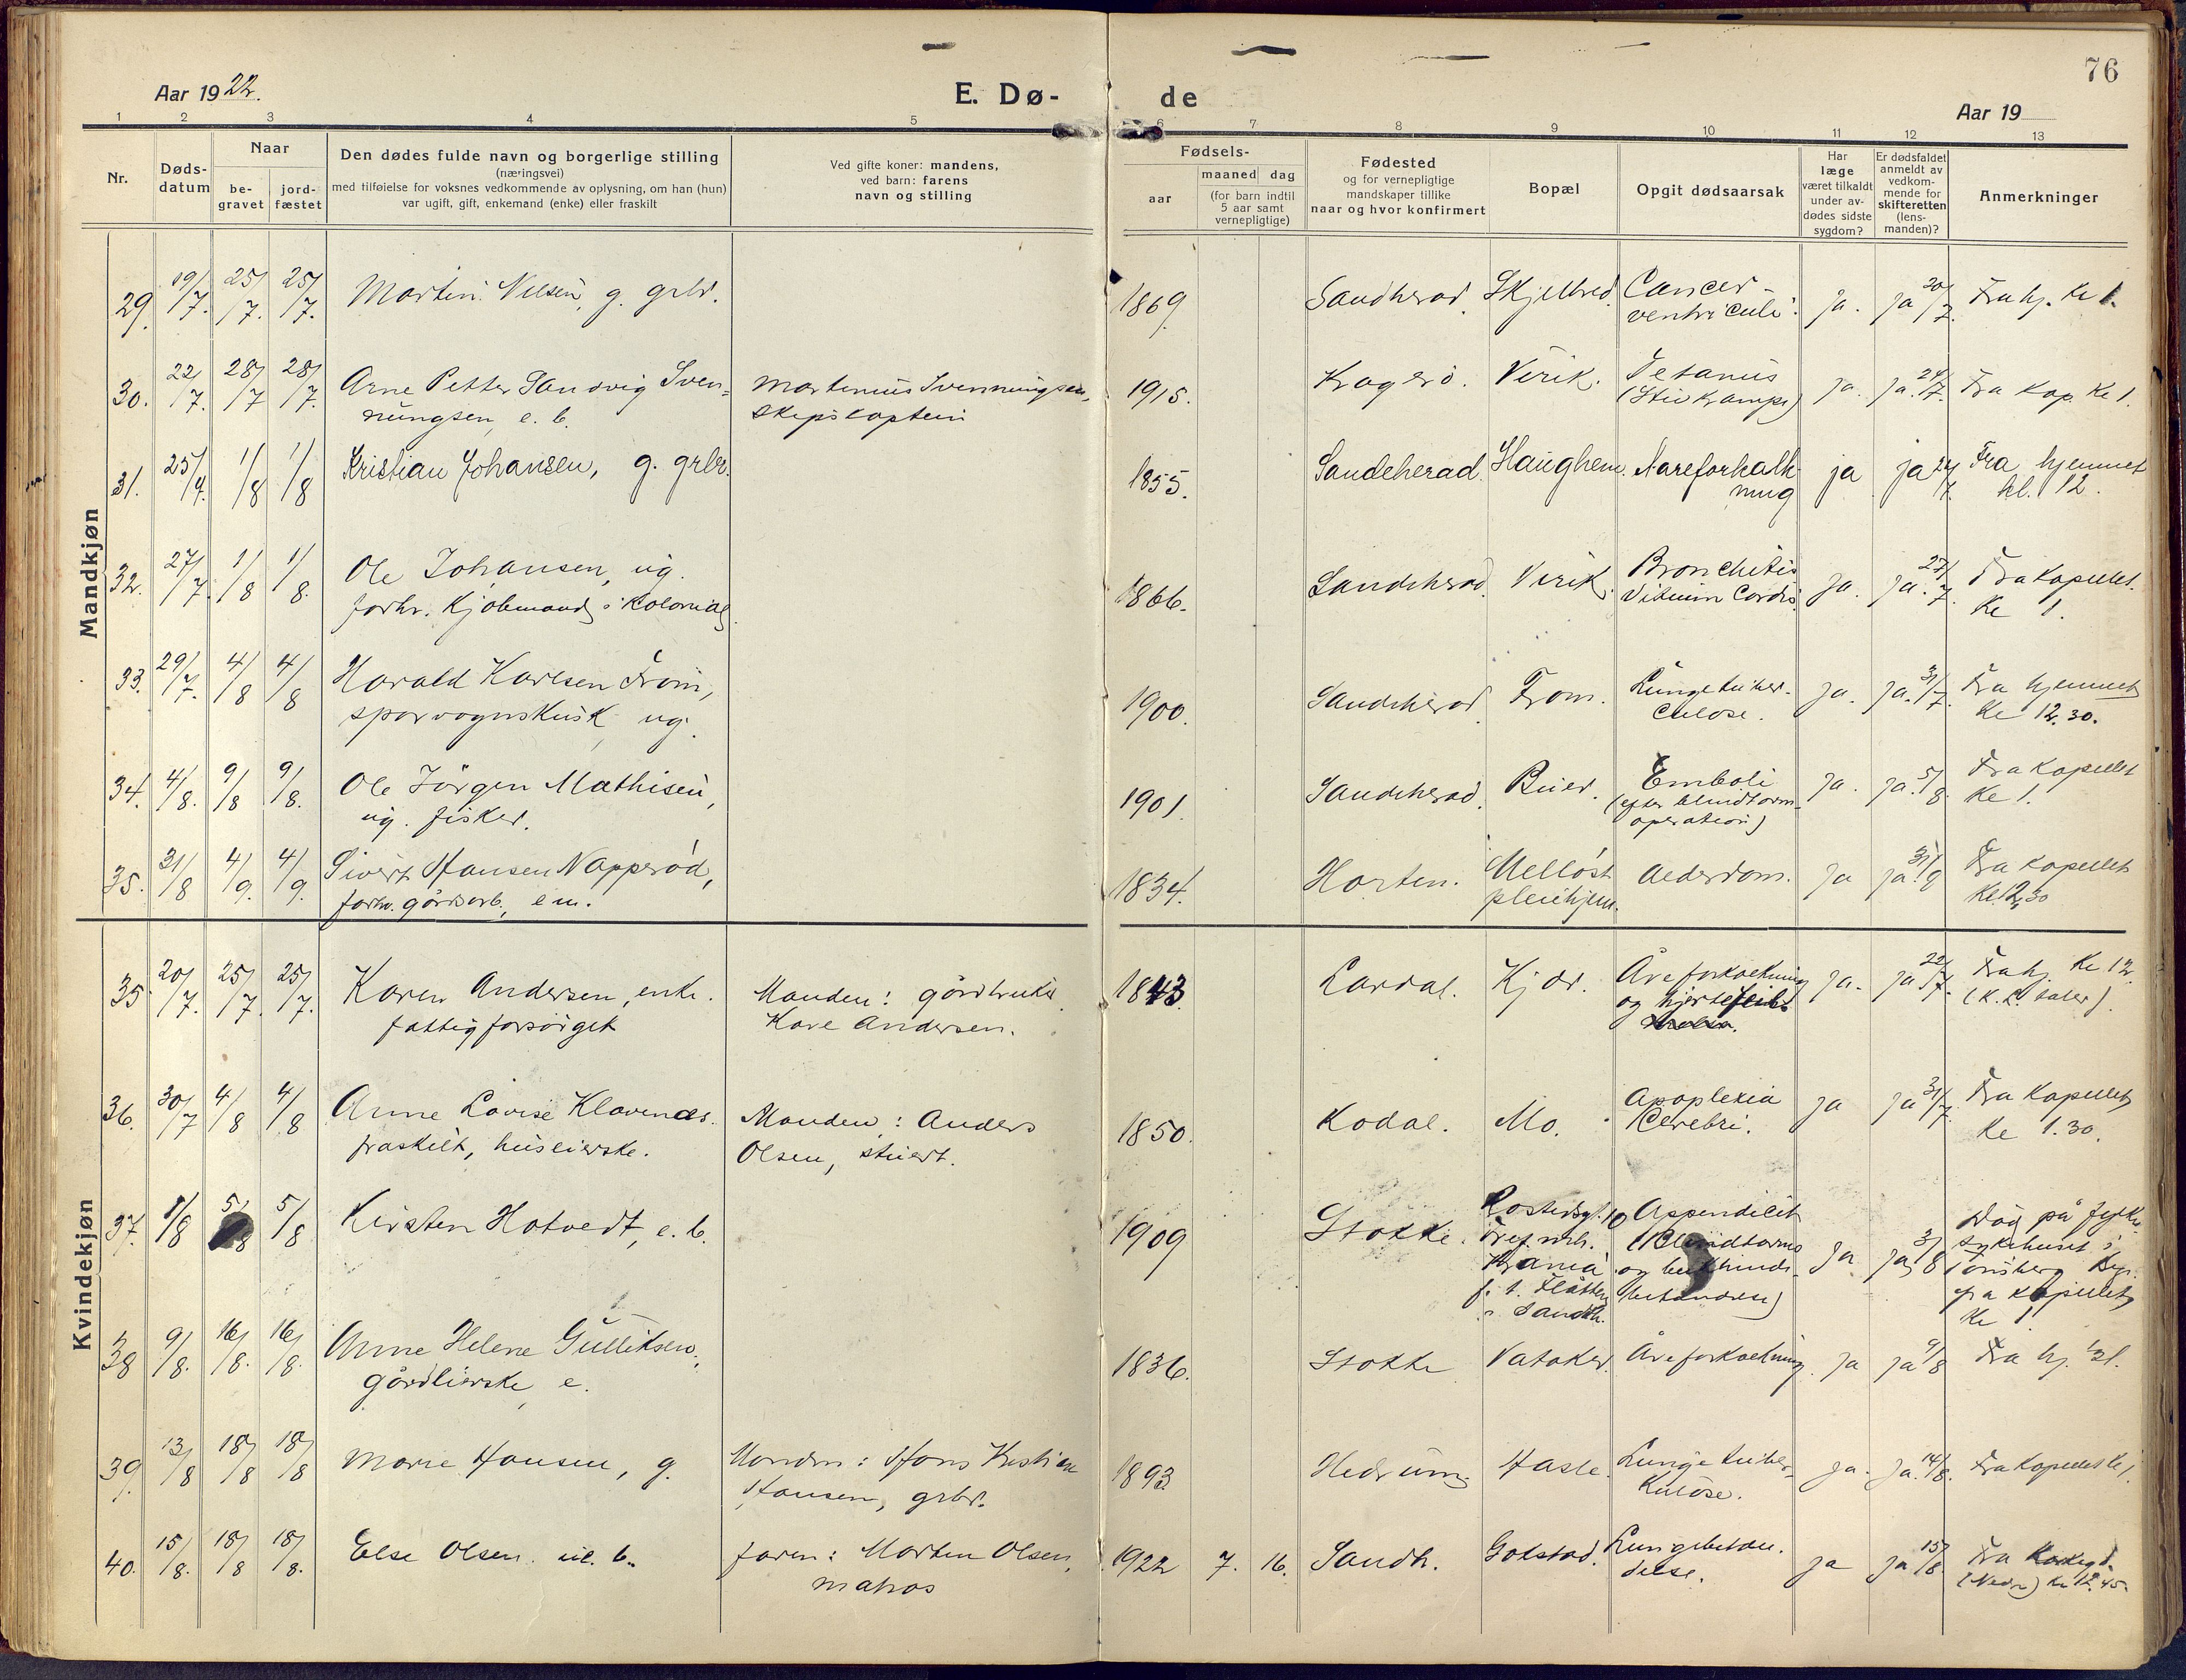 76
Aar 1922.
E. Dø-
de
Aar 19
1 2 3 4 5 6 7 8 9 10 11 12 13
Nr.
Døds-
datum
Naar
be-
gravet
jord-
fæstet
Den dødes fulde navn og borgerlige stilling
(næringsvei)
med tilføielse for voksnes vedkommende av oplysning, om han (hun)
var ugift, gift, enkemand (enke) eller fraskilt
Ved gifte koner: mandens,
ved barn: farens
navn og stilling
Fødsels-
aar
maaned dag
(for barn indtil
5 aar samt
vernepligtige)
Fødested
og for vernepligtige
mandskaper tillike
naar og hvor konfirmert
Bopæl
Opgit dødsaarsak
Har
læge
været tilkaldt
under av-
dødes sidste
sygdom?
Er dødsfaldet
anmeldt av
vedkom-
mende for
skifteretten
(lens-
manden)?
Anmerkninger
Mandkjøn
29. 19/7. 25/7. 25/7. Martin Nilsen, g. grbr. 1869. Sandherad. Skjelbred. Cancer
ventriculi. ja. ja 20/7. Fra hj. kl 1.
30. 22/7. 28/7 28/7. Arne Petter Sandvig Sven-
nungsen, e. b. Martinius Svennungsen,
skipskaptein 1915. Kragerø. Virik. Tetanus
(Stivkrampe) ja. ja. 24/7. Fra kap. kl 1.
31. 25/7. 1/8 1/8 Kristian Johansen, g. grbr. 1855. Sandeherad. Haughem. Aareforkalk-
ning ja ja 27/7. Fra hjemmet
kl. 12.
32. 27/7. 1/8 1/8. Ole Johansen, ug.
forhv. Kjøbmand i Kolonial. 1866. Sandeherad. Virik. Bronchitis
Vitium Cordis. ja. ja. 7. Fra Kapellet.
Kl 1.
33. 29/7. 4/8 4/8 Harald Karlsen From,
sporvognskusk, ug. 1900. Sandeherad. From. Lungetuber-
culose. ja. ja. 31/7. Fra hjemmet
Kl 12.30.
34. 4/8. 9/8 9/8. Ole Jörgen Mathisen,
ug. fisker. 1901. Sandeherad. Buer. Emboli
(efter blindtarm-
operation) ja. ja. 5/8. Fra Kapellet
Kl 1.
35. 31/8 4/9. 4/9. Sivert Hansen Napperød,
forhv. gårdsarb., em. 1834. Horten. Melløst
pleiehjem. Alderdom. ja ja. Fra Kapellet
Kl. 12,30
Kvindekjøn
35. 20/7. 25/7. 25/7. Karen Andersen, enke.
fattigforsørget Manden: gårdbruker
Kare Andersen. 1843. Lardal. Kjær. Åreforkalkning
og hjertefeil. ja. ja 22/7. Fra hj. Kl 12.
(K. L. taler).
36. 30/7 4/8 4/8 Anne Lovise Klavenæs.
fraskilt, huseierske. Manden: Anders
Olsen, stuert. 1850. Kodal. Mo. Apoplexia
Cerebri. ja ja 31/7. Fra Kapellet
Kl 1.30.
37. 1/8 5/8 5/8 Kirsten Hotvedt, e. b. 1909 Stokke. Appendicit
(Blindtarms
og bukhinde-
betændelse) ja ja 3/8 Døg på fylke-
sykehuset i
Tönsberg. Beg.
fra Kapellet
Kl 1
38 9/8. 16/8. 16/8. Anne Helene Gulliksen.
gårdeierske, e. 1836. Stokke Vataker. Åreforkalkning. ja ja 9/8 Fra hj. 1/2 1.
39. 13/8 18/8 18/8 Marie Hansen, g. Manden: Hans Kristian
Hansen, grbr. 1893. Hedrum. Hasle. Lungetuber-
kulose. ja. ja. 14/8. Fra Kapellet kl 1
40. 15/8. 18/8 18/8. Else Olsen. ue. b. faren: Morten Olsen,
matros 1922 7. 16. Sandh. Gokstad. Lungebetæn-
delse. ja ja 15/8 Fra
(Nedre) kl 12.45.